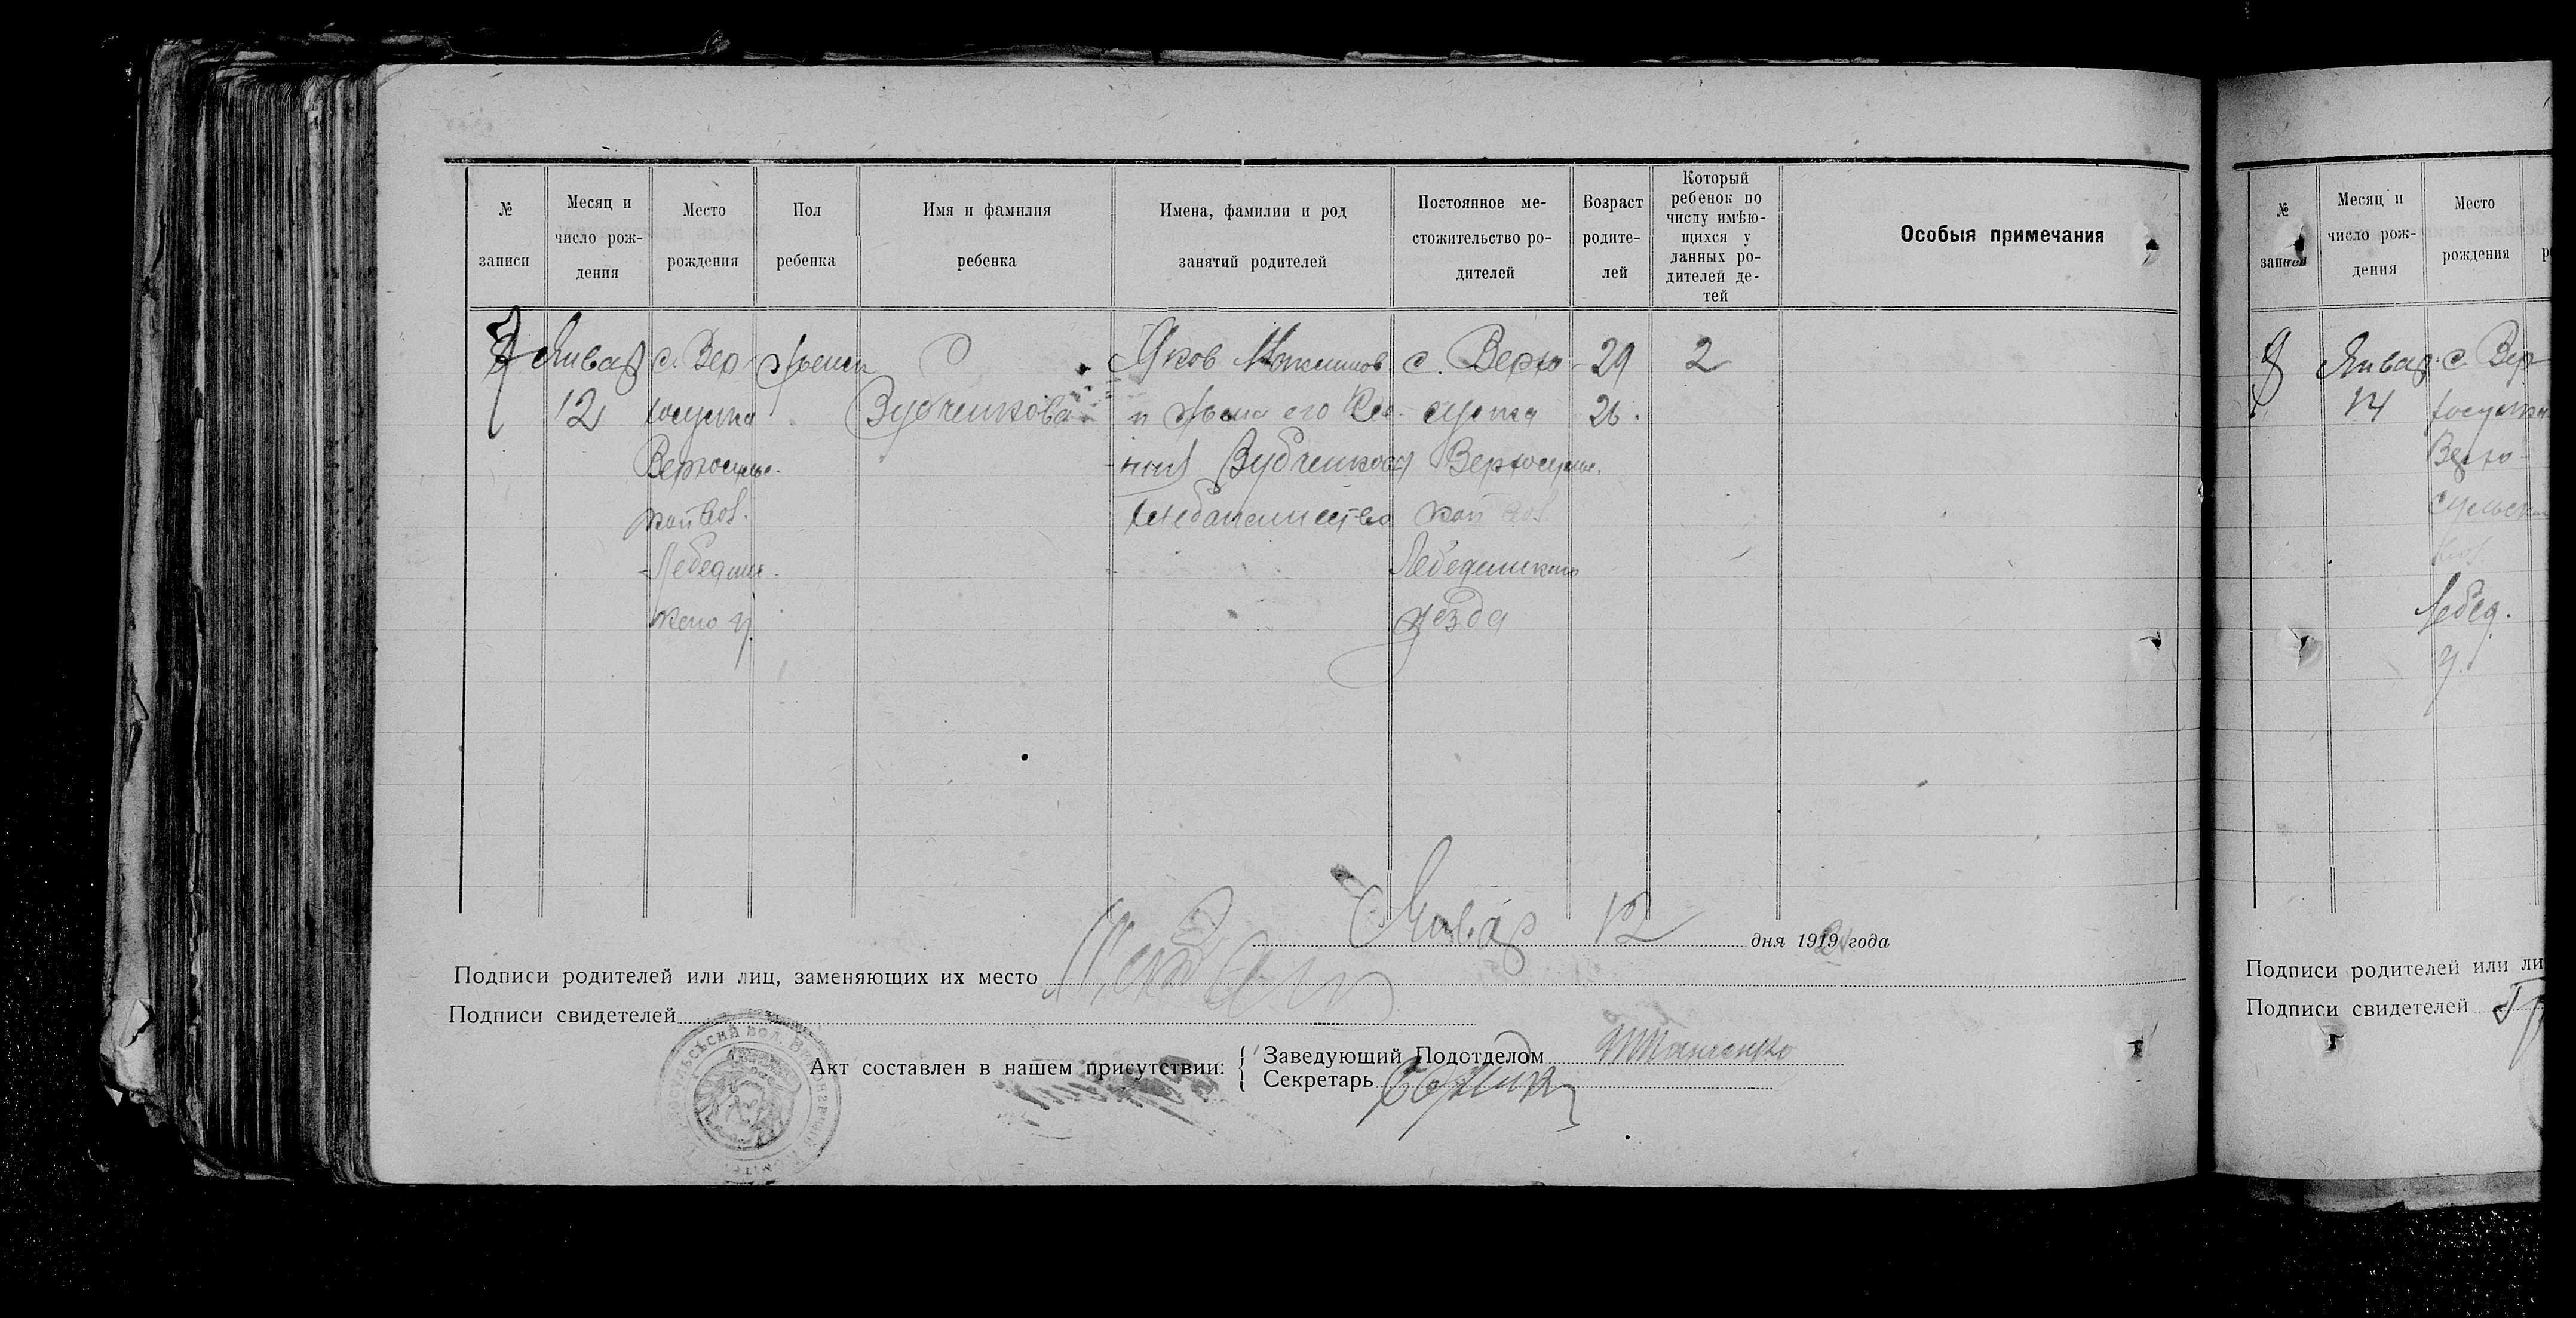 № записи
Месяц и число рождения
Место рождения
Пол ребенка
Имя и фамилия ребенка
Имена, фамилии и род занятий родителей
Постоянное местожительство родителей
Возраст родителей
Который ребенок по числу имѣющихся у данных родителей детей
Особыя примечания
7 Январ с. Вер- женск Яков с. Верхо- 29 2
12 хосулка Зубченкова и жена его сулка 26.
Верхосуль- Зубченков Верхосульс.
кой вол. Хлебопашество кой вол.
Лебединс- Лебединского
каго у. уезда
Январ 12 дня 1919 года
Подписи родителей или лиц, заменяющих их место
Подписи свидетелей
Акт составлен в нашем присутствии:
Заведующий Подотделом
Секретарь
№ записи
Месяц и число рождения
Место рождения
8 Январ с. Вер
14 хосулка
Верхо-
сульск
вол.
Лебед.
у.
Подписи родителей или ли
Подписи свидетелей